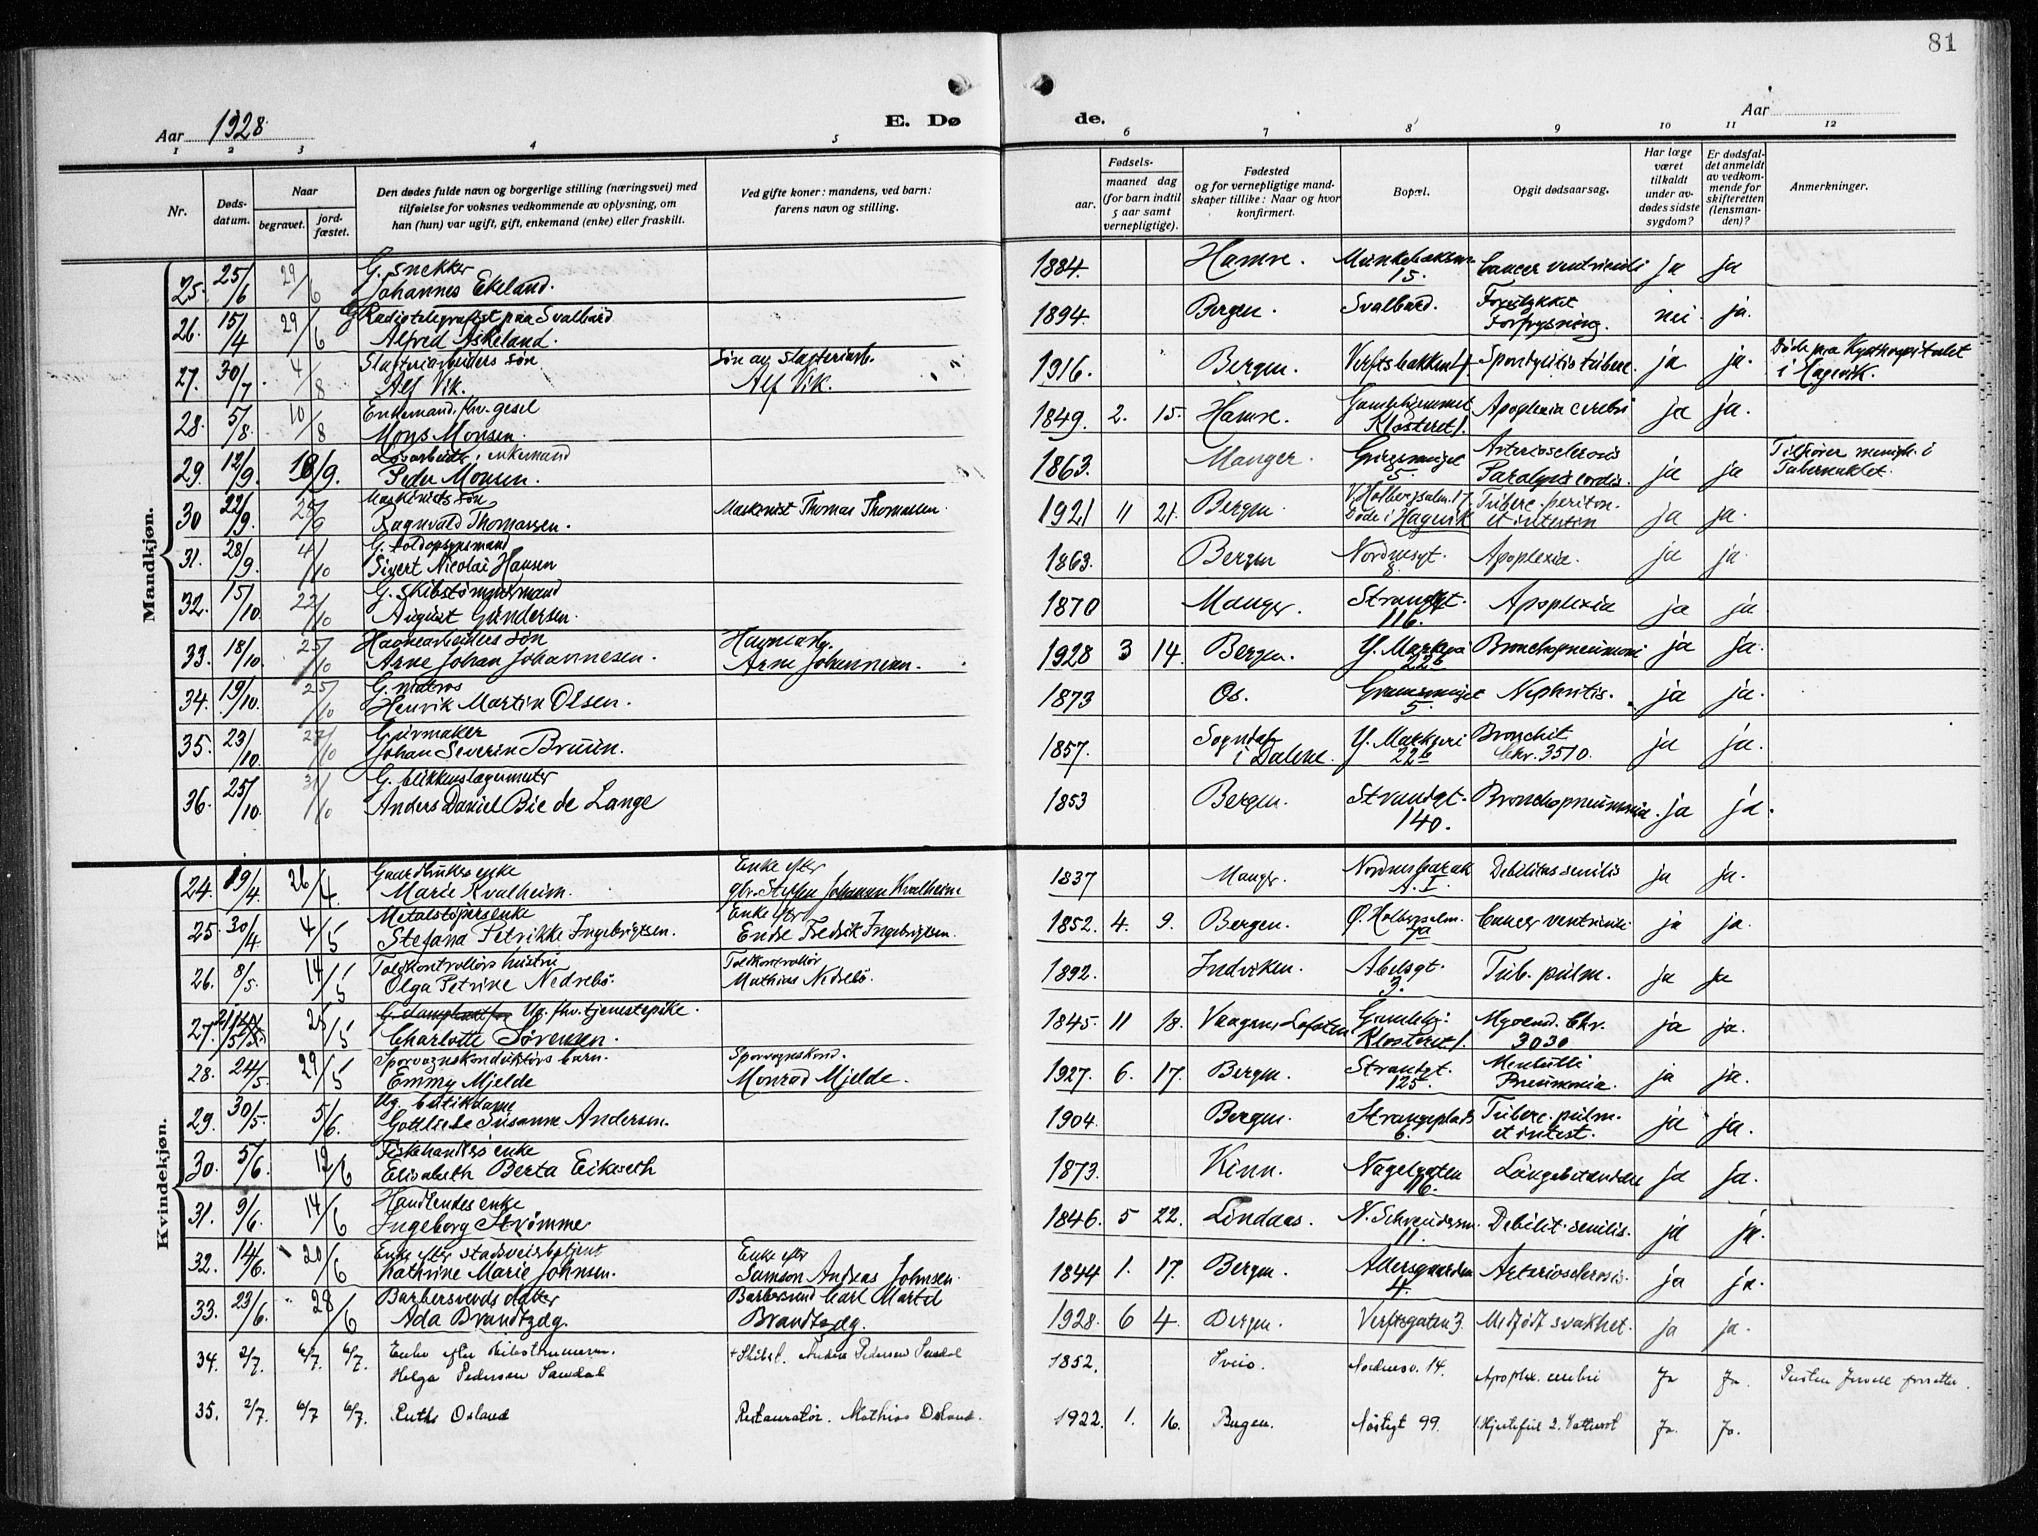 81
Aar 1928
E. Dø
de.
Aar
1 2 3 4 5 6 7 8 9 10 11 12
Nr.
Døds-
datum.
Naar
begravet.
jord-
fæstet.
Den dødes fulde navn og borgerlige stilling (næringsvei) med
tilføielse for voksnes vedkommende av oplysning, om
han (hun) var ugift, gift, enkemand (enke) eller fraskilt.
Ved gifte koner: mandens, ved barn:
farens navn og stilling.
Fødsels-
aar.
maaned dag
(for barn indtil
5 aar samt
vernepligtige).
Fødested
og for vernepligtige mand-
skaper tillike: Naar og hvor
konfirmert.
Bopæl.
Opgit dødsaarsag.
Har læge
været
tilkaldt
under av-
dødes sidste
sygdom?
Er dødsfal-
det anmeldt
av vedkom-
mende for
skifteretten
(lensman-
den)?
Anmerkninger.
Mandkjøn.
25. 25/6 29/6 G. snekker
Johannes Ekeland. 1884. Hamre. 15. Cancer ventriculi ja ja
26. 15/4 29/6 G. Radiotelegrafist paa Svalbard
Alfred Askeland. 1894. Bergen. Svalbard. Forulykket
Forfrysning. nei ja.
27. 30/7 4/8 Slakteriarbeiders søn
Alf Vik. Søn av slakteriarb.
Alf Vik. 1916. Bergen. Verftsbakken Spondylitis tuberc. ja ja. Døde paa Kysthospitalet
i Hagevik.
28. 5/8 10/8 Enkemand, fhv. gesel
Mons Monsen. 1849. 2. 15. Hamre. Gamlehjemmet
Klosteret 1. Apoplexia cerebri ja ja.
29. 12/9. 18/9. Løsarbeider, enkemand
Peder Monsen. 1863. Manger. 5. Arteriosclerosis
Paralysis cordis. ja ja Tilhører menigh. i
Tabernaklet.
30 22/9. 25/9 Maskinists søn
Ragnvald Thomassen. Maskinist Thomas Thomassen. 1921 11 21. Bergen V. Holbergsalm. 17
Døde i Hagevik Tuberc. periton.
et intestin ja ja.
31. 28/9. 4/10 G. toldopsynsmand
Sivert Nicolai Hansen 1863. Bergen Nordnesgt.
8. Apoplexia. ja ja.
32. 15/10. 22/10 G. skibstømmermand
August Gundersen. 1870 Manger. Strandgt.
116. Apoplexia ja ja.
33. 18/10. 25/10 Havnearbeiders søn
Arne Johan Johannesen. Havnearb.
Arne Johannesen. 1928 3 14. Bergen. Y. Markevei
22b Bronchopneumoni ja ja.
34. 19/10. 25/10 G. matros
Henrik Martin Olsen. 1873 Os. 5. Nephritis. ja ja.
35. 23/10 27/10 Gjørmaker
Johan Severin Bruun. 1857. Sogndal
i Dalene. Y. Markevei
22b Bronchit
chr. 3510. ja ja.
36. 25/10. 31/10 G. blikkenslagermester
Anders Daniel Bie de Lange 1853 Bergen. Strandgt.
140. Bronchopneumonia. ja ja.
Kvindekjøn.
24. 19/4. 26/4. Gaardbrukers enke
Marie Kvalheim. Enke efter
gbr. Steffen Johannes Kvalheim 1837 Manger. Nordnesbarak
A. I. Debilitas senilis ja ja.
25. 30/4 4/5 Metalstøpers enke
Stefana Petrikke Ingebrigtsen. Enke efter
Endre Fredrik Ingebrigtsen. 1852. 4. 9. Bergen. Ø. Holbergsalm.
7a Cancer ventriculi ja ja.
26. 8/5. 14/5 Toldkontrollørs hustru
Olga Petrine Nedrebø. Toldkontrollør
Mathias Nedrebø. 1892. Indviken. Abelsgt.
3. Tub. pulm. ja ja
27. 21/5 25/5 Ug. fhv. tjenestepike.
Charlotte Sørensen. 1845. 11 18. Vaagan, Lofoten Gamlehj.
Klosteret 1. Myocard. Chr.
3030 ja ja.
28. 24/5. 29/5 Sporvognskonduktørs barn.
Emmy Mjelde Sporvognskond.
Monrad Mjelde. 1927. 6. 17. Bergen. Strandgt.
125. Meslutti
Pneumonia. ja ja.
29. 30/5. 5/6. Ug. butikdame
Gottliebe Susanne Andersen. 1904. Bergen. Strangeplads
6. Tuberc. pulm.
et intest. ja ja.
30. 5/6. 12/6 Fiskehandlers enke
Elisabeth Berta Eikseth 1873. Kinn. Nagelgaten
16. Lungebetændelse ja ja.
31. 9/6. 14/6 Handlendes enke
Ingeborg Strømme 1846. 5 22. Lindaas. 11. Debilit. senilis. ja ja.
32. 14/6. 20/6 Enke efter stadsveierbetjent
Kathrine Marie Johnsen. Enke efter
Samson Andreas Johnsen. 1844 1. 17. Bergen. 4. Arteriosclerosis. ja ja.
33. 23/6. 28/6 Barbersvends datter
Ada Brandtzæg. Barbersvend Carl Martel
Brandtzæg. 1928. 6 4. Bergen. Verftsgaten 3. Medfødt svakhet. ja ja.
34. 2/7. 6/7. 6/7. Enke efter skibstømmerm.
Helga Pedersen Sandal Anders Pedersen Sandal 1852. Sveio. Nordnesv. 14. Apoplex. cerebri Ja Ja.
35. 2/7. 6/7 6/7. Ruth Osland Restauratør. Mathias Osland. 1922. 1. 16. Bergen. Nøstegt 99. 1. Hjertefeil 2. Vattersot Ja. Ja.